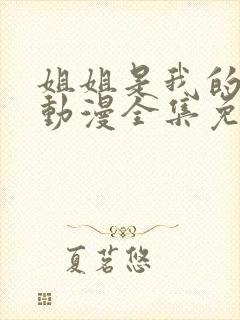 姐姐是我的
動漫全集免
夏茗悠